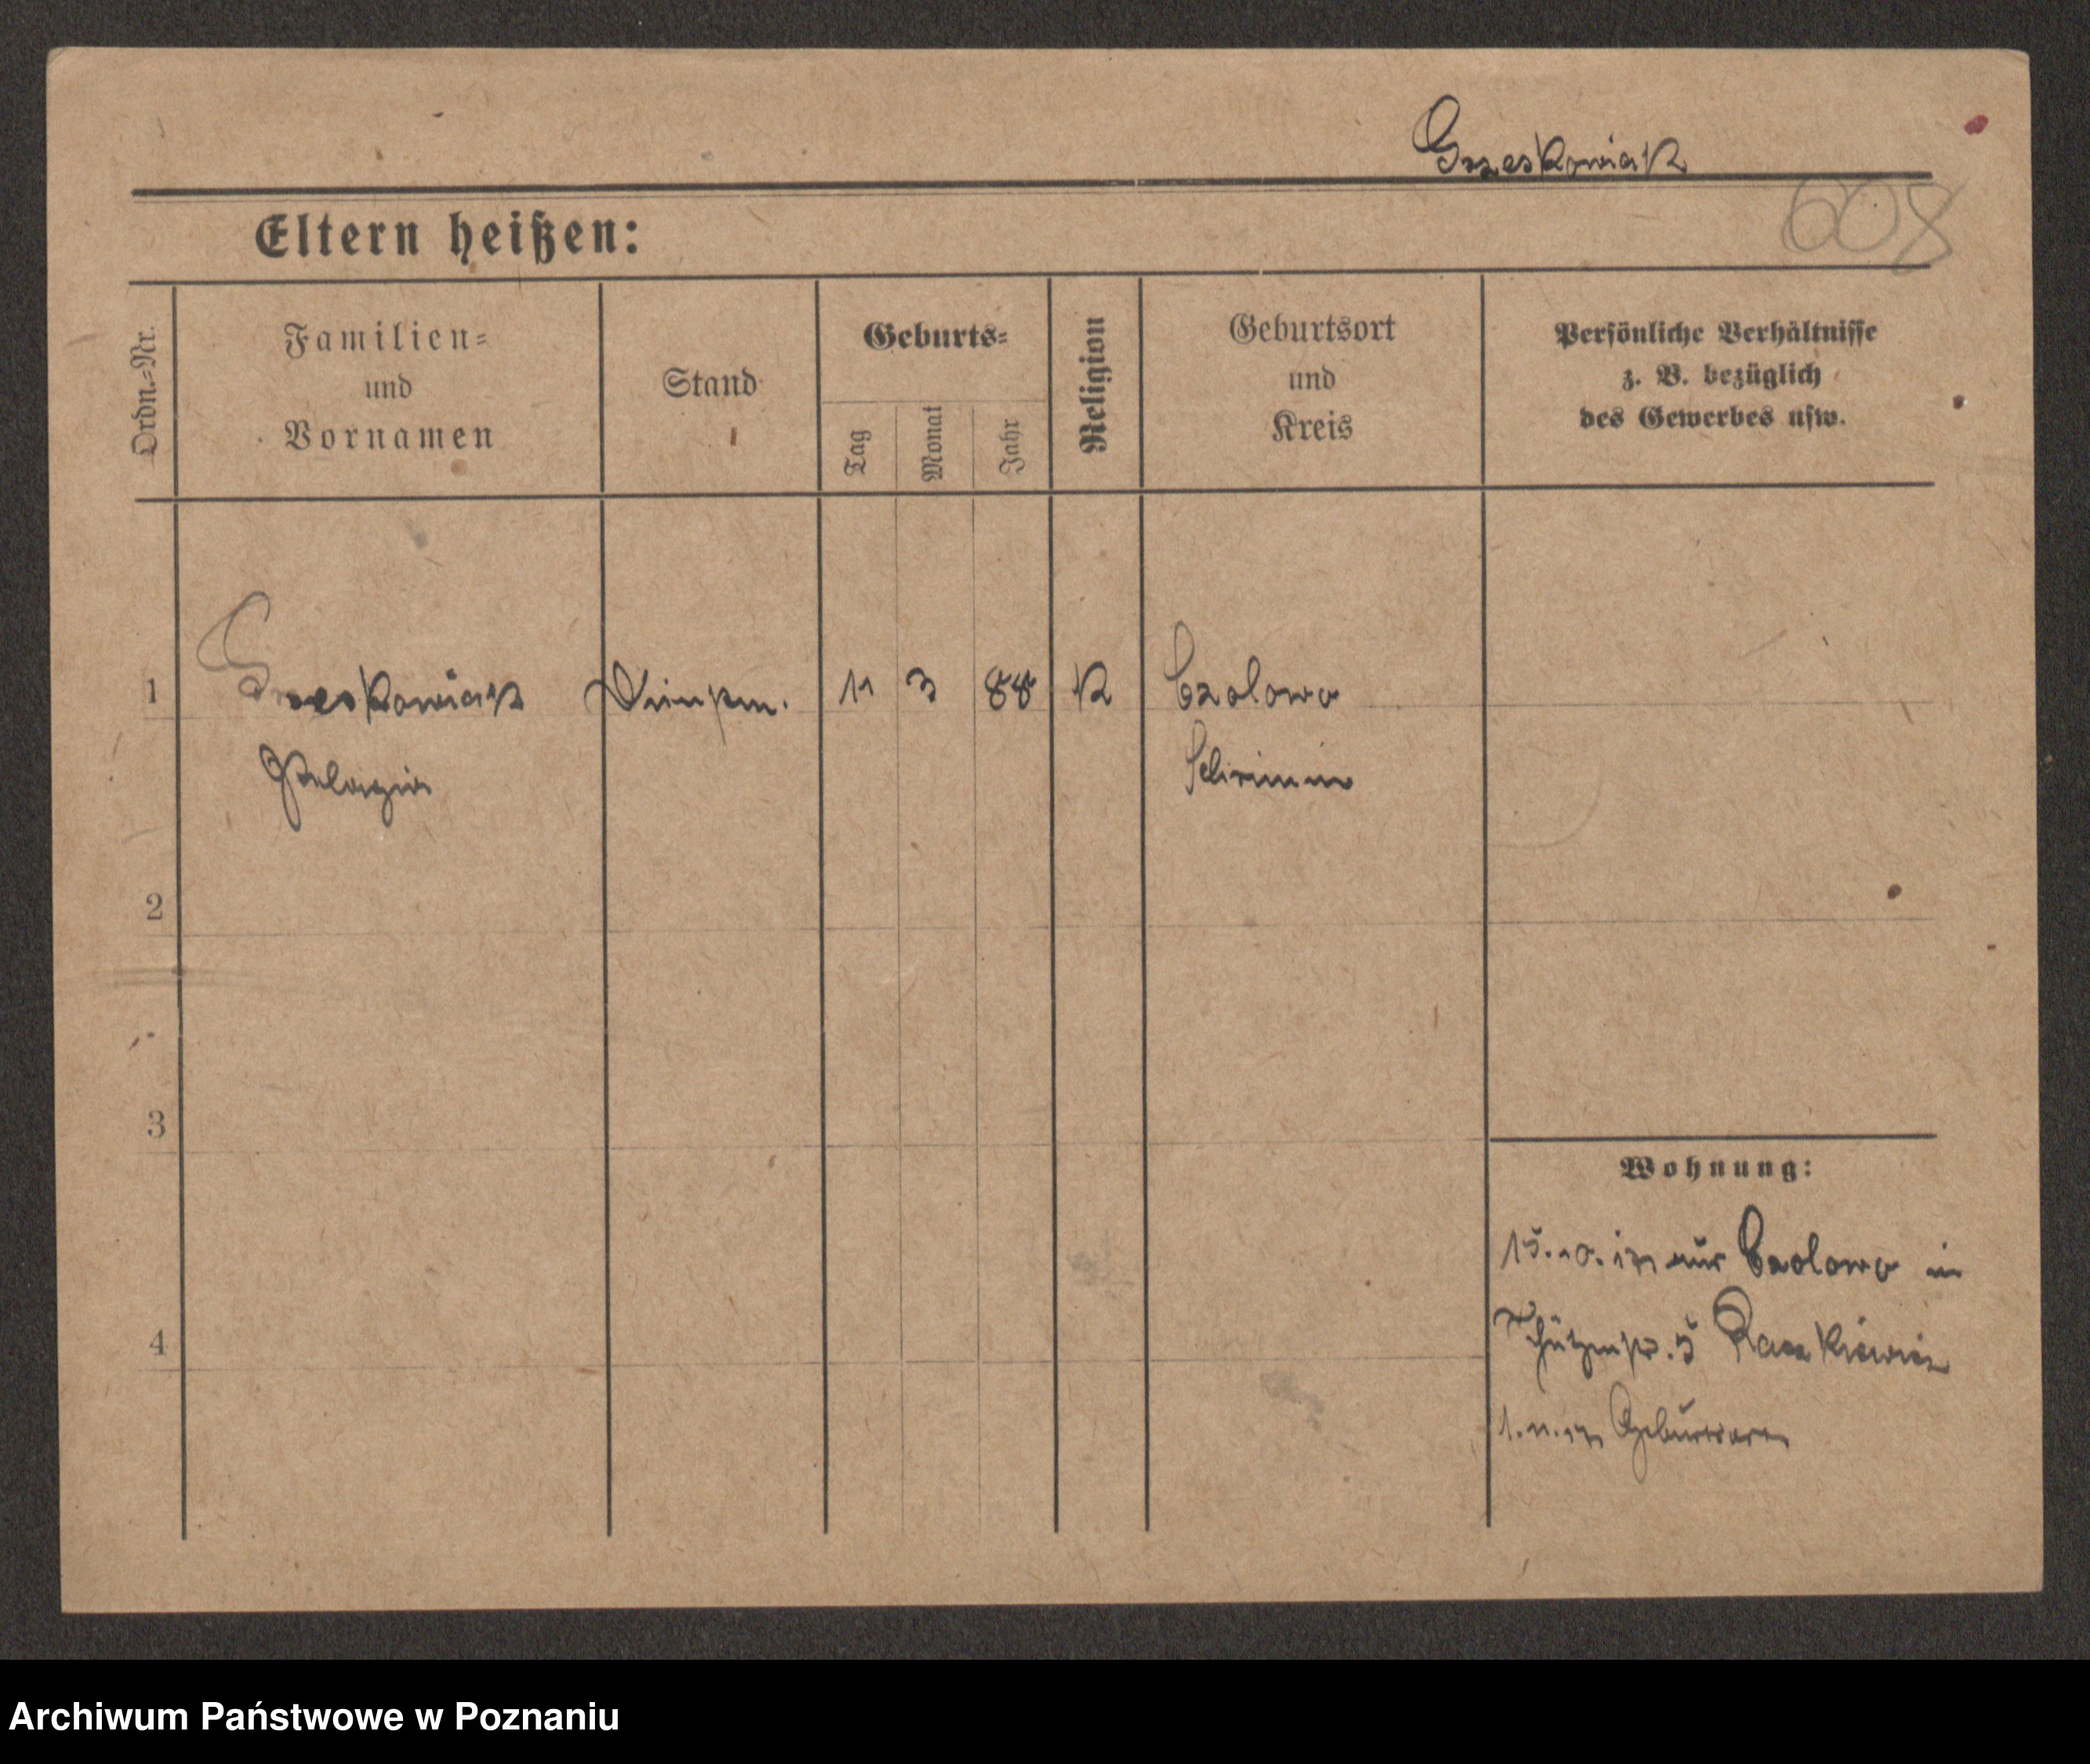 Grzeskowiak
608
Eltern heißen:
Ordn.-Nr.
Familien-
und
Vornamen
Stand
Geburts-
Tag
Monat
Jahr
Religion
Geburtsort
und
Kreis
Persönliche Verhältnisse
z. B. bezüglich
des Gewerbes usw.
1 Grzeskowiak 11 3 88 K Czolowo
Pelagia Schrimm
2
3
4
Wohnung:
15.10.17 aus Czolowo in
Schützenstr. 5
1.11.17
Archiwum Państwowe w Poznaniu